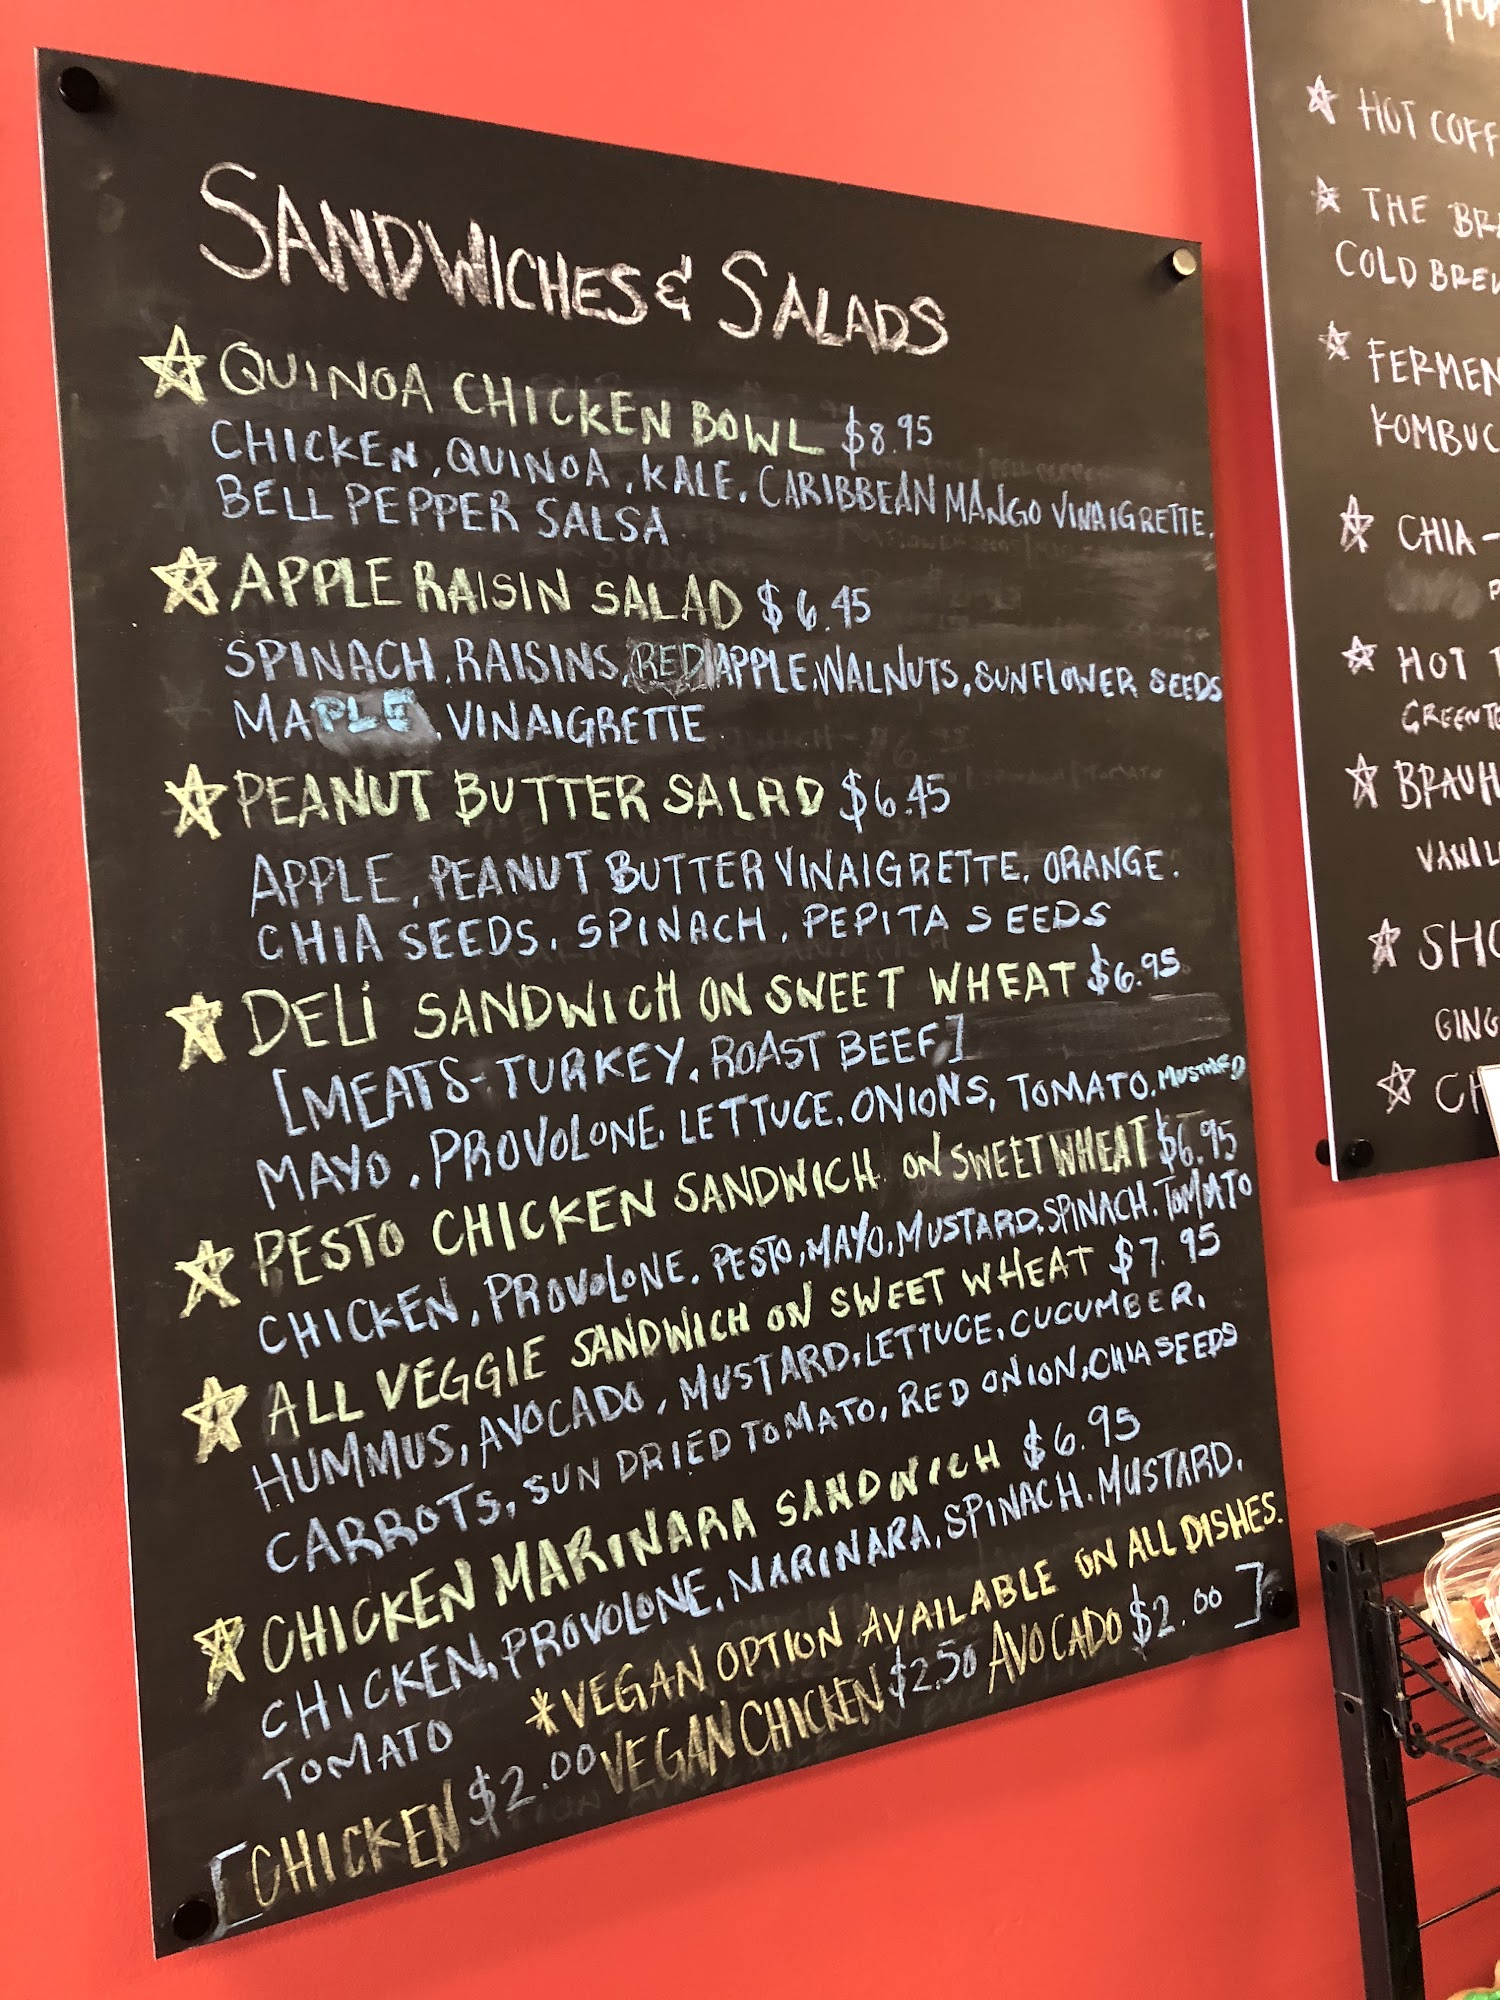 SANDWICHES & SALADS
QUINOA CHICKEN BOWL $8.95
CHICKEN, QUINOA, KALE, CARIBBEAN MANGO VINAIGRETTE,
BELL PEPPER SALSA
APPLE RAISIN SALAD $6.45
SPINACH, RAISINS, RED APPLE, WALNUTS, SUNFLOWER SEEDS
MAPLE, VINAIGRETTE
PEANUT BUTTER SALAD $6.45
APPLE, PEANUT BUTTER VINAIGRETTE, ORANGE,
CHIA SEEDS, SPINACH, PEPITA SEEDS
DELI SANDWICH ON SWEET WHEAT $6.95
[MEATS-TURKEY, ROAST BEEF]
MAYO, PROVOLONE, LETTUCE, ONIONS, TOMATO, MUSTARD
PESTO CHICKEN SANDWICH ON SWEET WHEAT $6.95
CHICKEN, PROVOLONE, PESTO, MAYO, MUSTARD, SPINACH, TOMATO
ALL VEGGIE SANDWICH ON SWEET WHEAT $7.95
HUMMUS, AVOCADO, MUSTARD, LETTUCE, CUCUMBER,
CARROTS, SUN DRIED TOMATO, RED ONION, CHIA SEEDS
CHICKEN MARINARA SANDWICH $6.95
CHICKEN, PROVOLONE, MARINARA, SPINACH, MUSTARD,
TOMATO
*VEGAN OPTION AVAILABLE ON ALL DISHES.
[CHICKEN $2.00 VEGAN CHICKEN $2.50 AVOCADO $2.00]
HOT COFF
THE BRA
COLD BREW
FERMEN
KOMBUC
CHIA-
HOT T
GREEN TE
BRAUH
VANIL
SHO
GING
CH